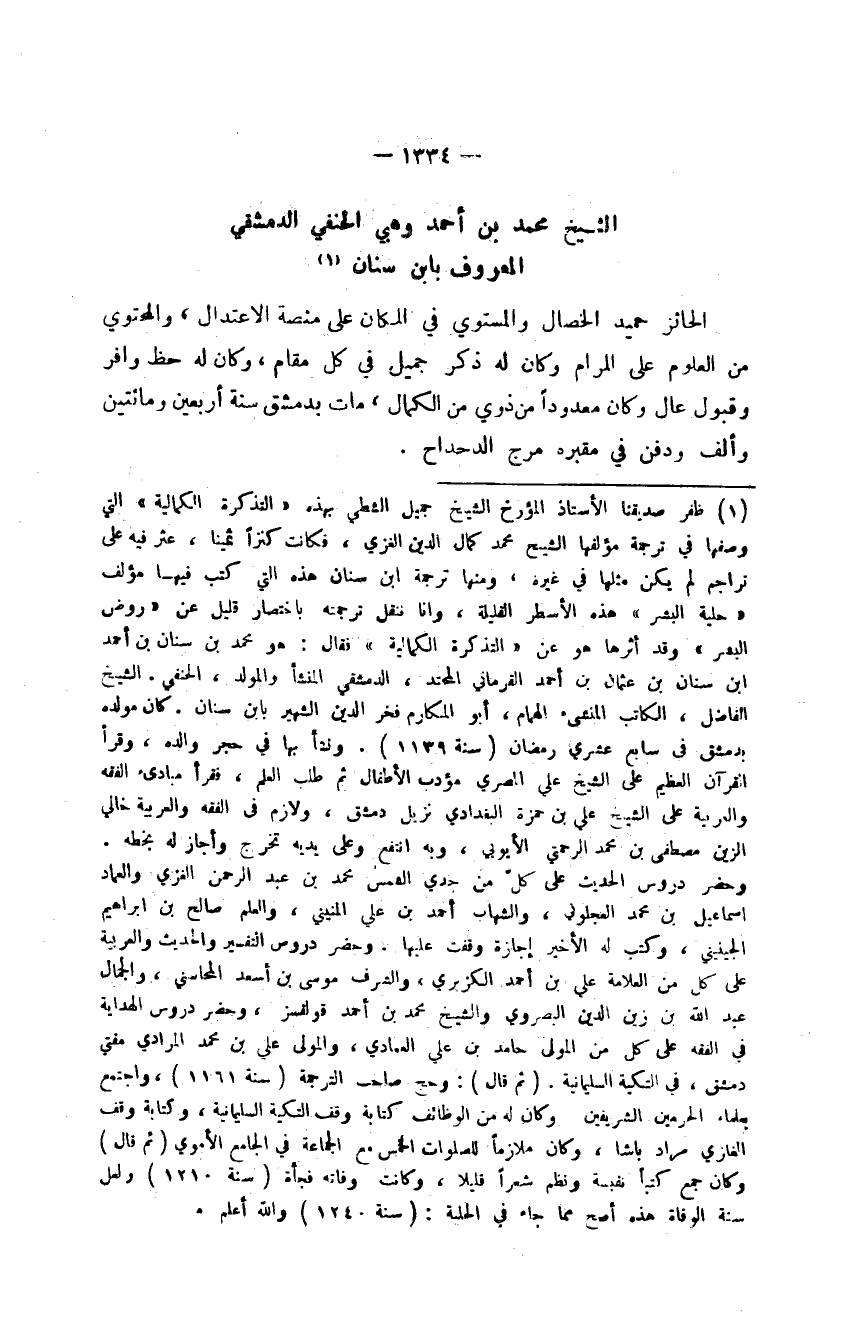 — ١٣٣٤ —
الشيخ محمد بن أحمد وهبي الحنفي الدمشقي
المعروف بابن سنان (١)
الحائز حميد الخصال والمستوي في المكان على منصة الاعتدال ، والمحتوي
من العلوم على المرام وكان له ذكر جميل في كل مقام ، وكان له حظ وافر
وقبول عال وكان معدوداً من ذوي من الكمال ، مات بدمشق سنة أربعين ومائتين
وألف ودفن في مقبره مرج الدحداح .
(١) ظفر صديقنا الأستاذ المؤرخ الشيخ جميل الشطي بهذه « التذكرة الكمالية » التي
وصفها في ترجمة مؤلفها الشيخ محمد كمال الدين الغزي ، فكانت كنزاً ثمينا ، عثر فيه على
تراجم لم يكن مثلها في غيره ، ومنها ترجمة ابن سنان هذه التي كتب فيهـا مؤلف
« حلية البشر » هذه الأسطر القليلة ، وانا ننقل ترجمته باختصار قليل عن « روض
البشر » وقد أثرها هو عن « التذكرة الكمالية » فقال : هو محمد بن سنان بن أحمد
ابن سنان بن عثمان بن أحمد القرماني المحتد ، الدمشقي المنشأ والمولد ، الحنفي . الشيخ
الفاضل ، الكاتب المنشىء الهمام ، أبو المكارم فخر الدين الشهير بابن سنان . كان مولده
بدمشق في سابع عشري رمضان ( سنة ١١٣٩ ) . ونشأ بها في حجر والده ، وقرأ
القرآن العظيم على الشيخ علي المصري مؤدب الأطفال ثم طلب العلم ، فقرأ مبادىء الفقه
والعربية على الشيخ علي بن حمزة البغدادي نزيل دمشق ، ولازم في الفقه والعربية خالي
الزين مصطفى بن محمد الرحمتي الأيوبي ، وبه انتفع وعلى يديه تخرج وأجاز له بخطه .
وحضر دروس الحديث على كلّ من جدي الشمس محمد بن عبد الرحمن الغزي والعماد
اسماعيل بن محمد العجلوني ، والشهاب أحمد بن علي المنيني ، والعلم صالح بن ابراهيم
الجينيني ، وكتب له الأخير إجازة وقفت عليها . وحضر دروس التفسير والحديث والعربية
على كل من العلامة علي بن أحمد الكزبري ، والشرف موسى بن أسعد المحاسني ، والجمال
عبد الله بن زين الدين البصروي والشيخ محمد بن أحمد قولقسز ، وحضر دروس الهداية
في الفقه على كل من المولى حامد بن علي العمادي ، والمولى علي بن محمد المرادي مفتي
دمشق ، في التكية السليمانية . ( ثم قال ) : وحج صاحب الترجمة ( سنة ١١٦١ ) ، واجتمع
بعلماء الحرمين الشريفين وكان له من الوظائف كتابة وقف التكية السليمانية ، وكتابة وقف
الغازي مراد باشا ، وكان ملازماً للصلوات الخمس مع الجماعة في الجامع الأموي ( ثم قال )
وكان جمع كتباً نفيسة ونظم شعراً قليلا ، وكانت وفاته فجأة ( سنة ١٢١٠ ) ولعل
سنة الوفاة هذه أصح مما جاء في الحلية : ( سنة ١٢٤٠ ) والله أعلم .